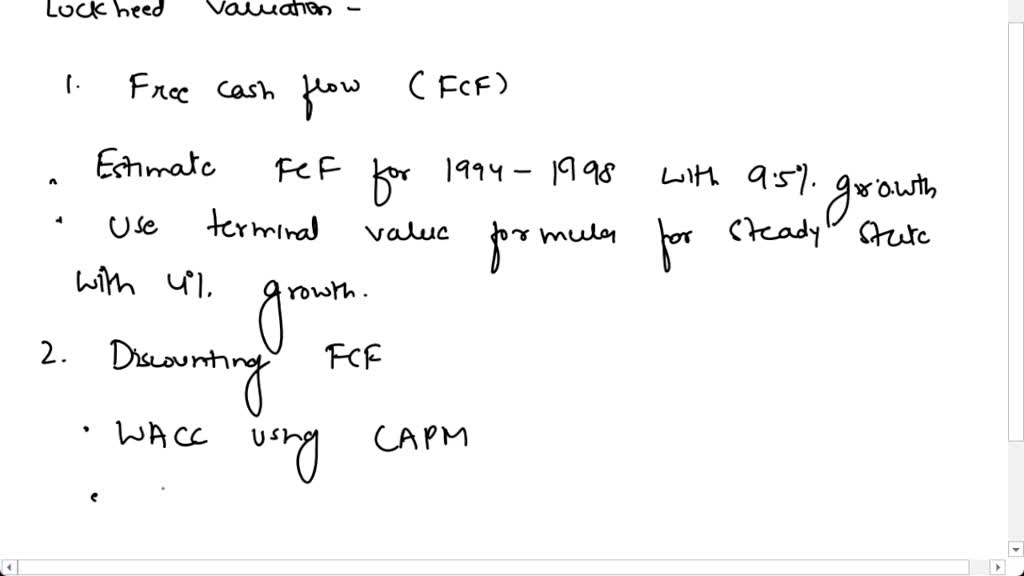 Lockheed Valuation -
1. Free cash flow (FCF)
Estimate FCF for 1994 - 1998 with 9.5% growth
Use terminal value formula for steady state
with 4% growth.
2. Discounting FCF
WACC using CAPM